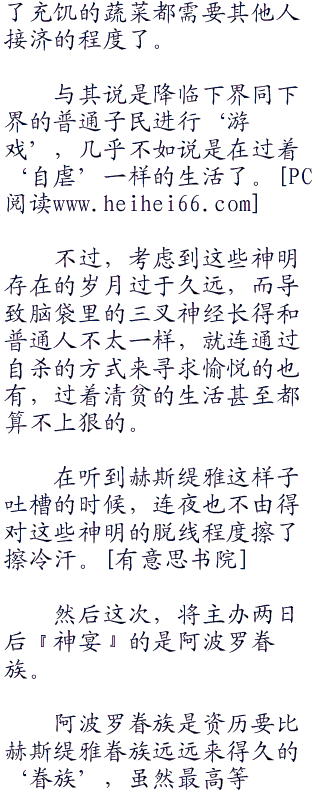 了充饥的蔬菜都需要其他人
接济的程度了。
与其说是降临下界同下
界的普通子民进行‘游
戏’，几乎不如说是在过着
‘自虐’一样的生活了。[PC
阅读www.heihei66.com]
不过，考虑到这些神明
存在的岁月过于久远，而导
致脑袋里的三叉神经长得和
普通人不太一样，就连通过
自杀的方式来寻求愉悦的也
有，过着清贫的生活甚至都
算不上狠的。
在听到赫斯缇雅这样子
吐槽的时候，连夜也不由得
对这些神明的脱线程度擦了
擦冷汗。[有意思书院]
然后这次，将主办两日
后『神宴』的是阿波罗眷
族。
阿波罗眷族是资历要比
赫斯缇雅眷族远远来得久的
‘眷族’，虽然最高等